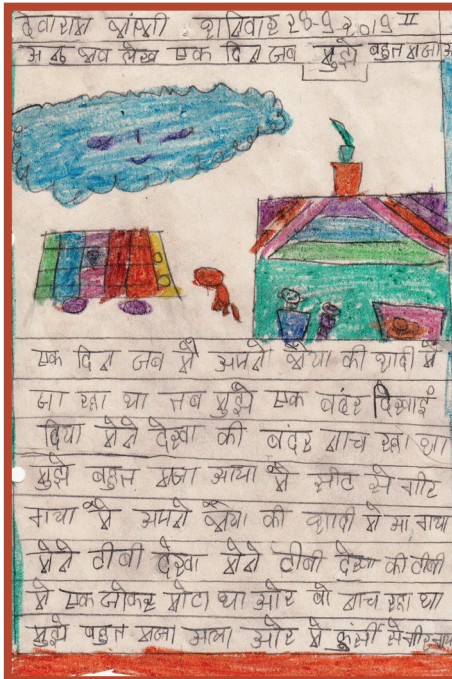 देवाराम शनिवार 28-9-2019 II
अनुभव लेख एक दिन जब मुझे बहुत मजा
एक दिन जब मैं अपने भैया की शादी में
जा रहा था तब मुझे एक बंदर दिखाई
दिया मैने देखा की बंदर नाच रहा था
मुझे बहुत मजा आया मैं सीट से गीर
गया मैं अपने भैया की शादी में आ गया
मैने टीबी देखा मैने टीबी देखा की टीबी
में एक जोकर मोटा था और बो नाच रहा था
मुझे बहुत मजा आया और मैं कुर्सी से गीर गया